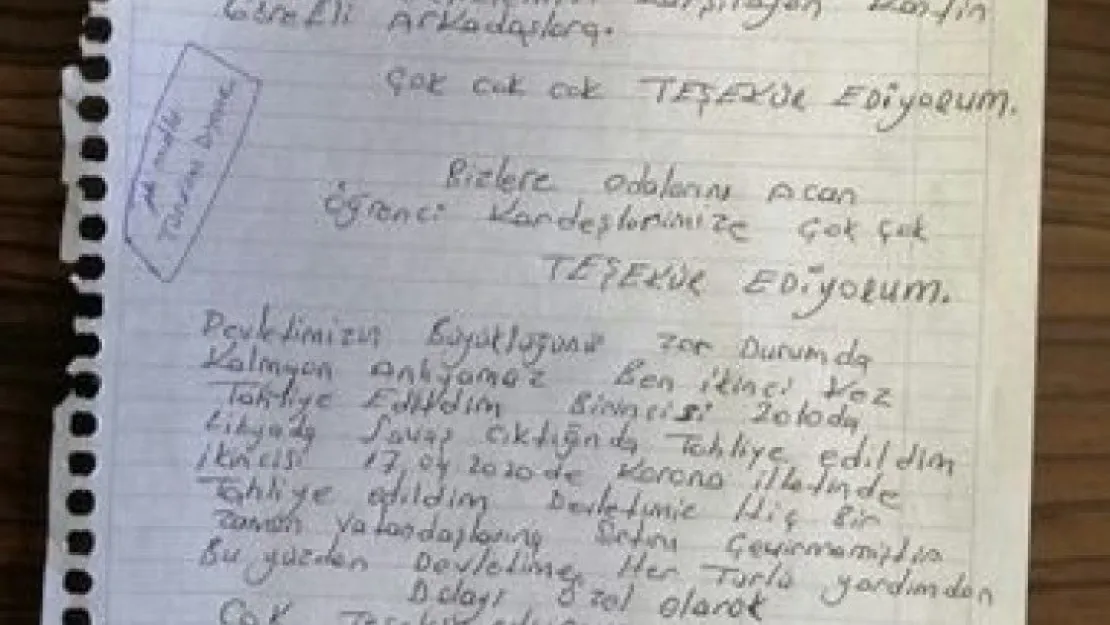 Karşılayan Yardın
Görevli Arkadaşlara.
Çok cok cok TEŞEKÜR EDİYORUM.
Bizlere odalarını Acan
Öğrenci Kardeşlerimize Çok Çok
TEŞEKÜR EDİYORUM.
Devletimizin Büyüklüğünü zor Durumda
Kalmıyan Anlıyamaz Ben ikinci Kez
Tahliye Edildim Birincisi 2010da
Libyada Savaş Çıktığında Tahliye edildim
ikincisi 17.04.2020.de Korona illetinde
Tahliye edildim Devletimiz Hiç Bir
zaman Vatandaşlarına Sırtını Çevirmemiştir
Bu yüzden Devletime, Her Türlü yardımdan
Dolayı özel olarak
Çok